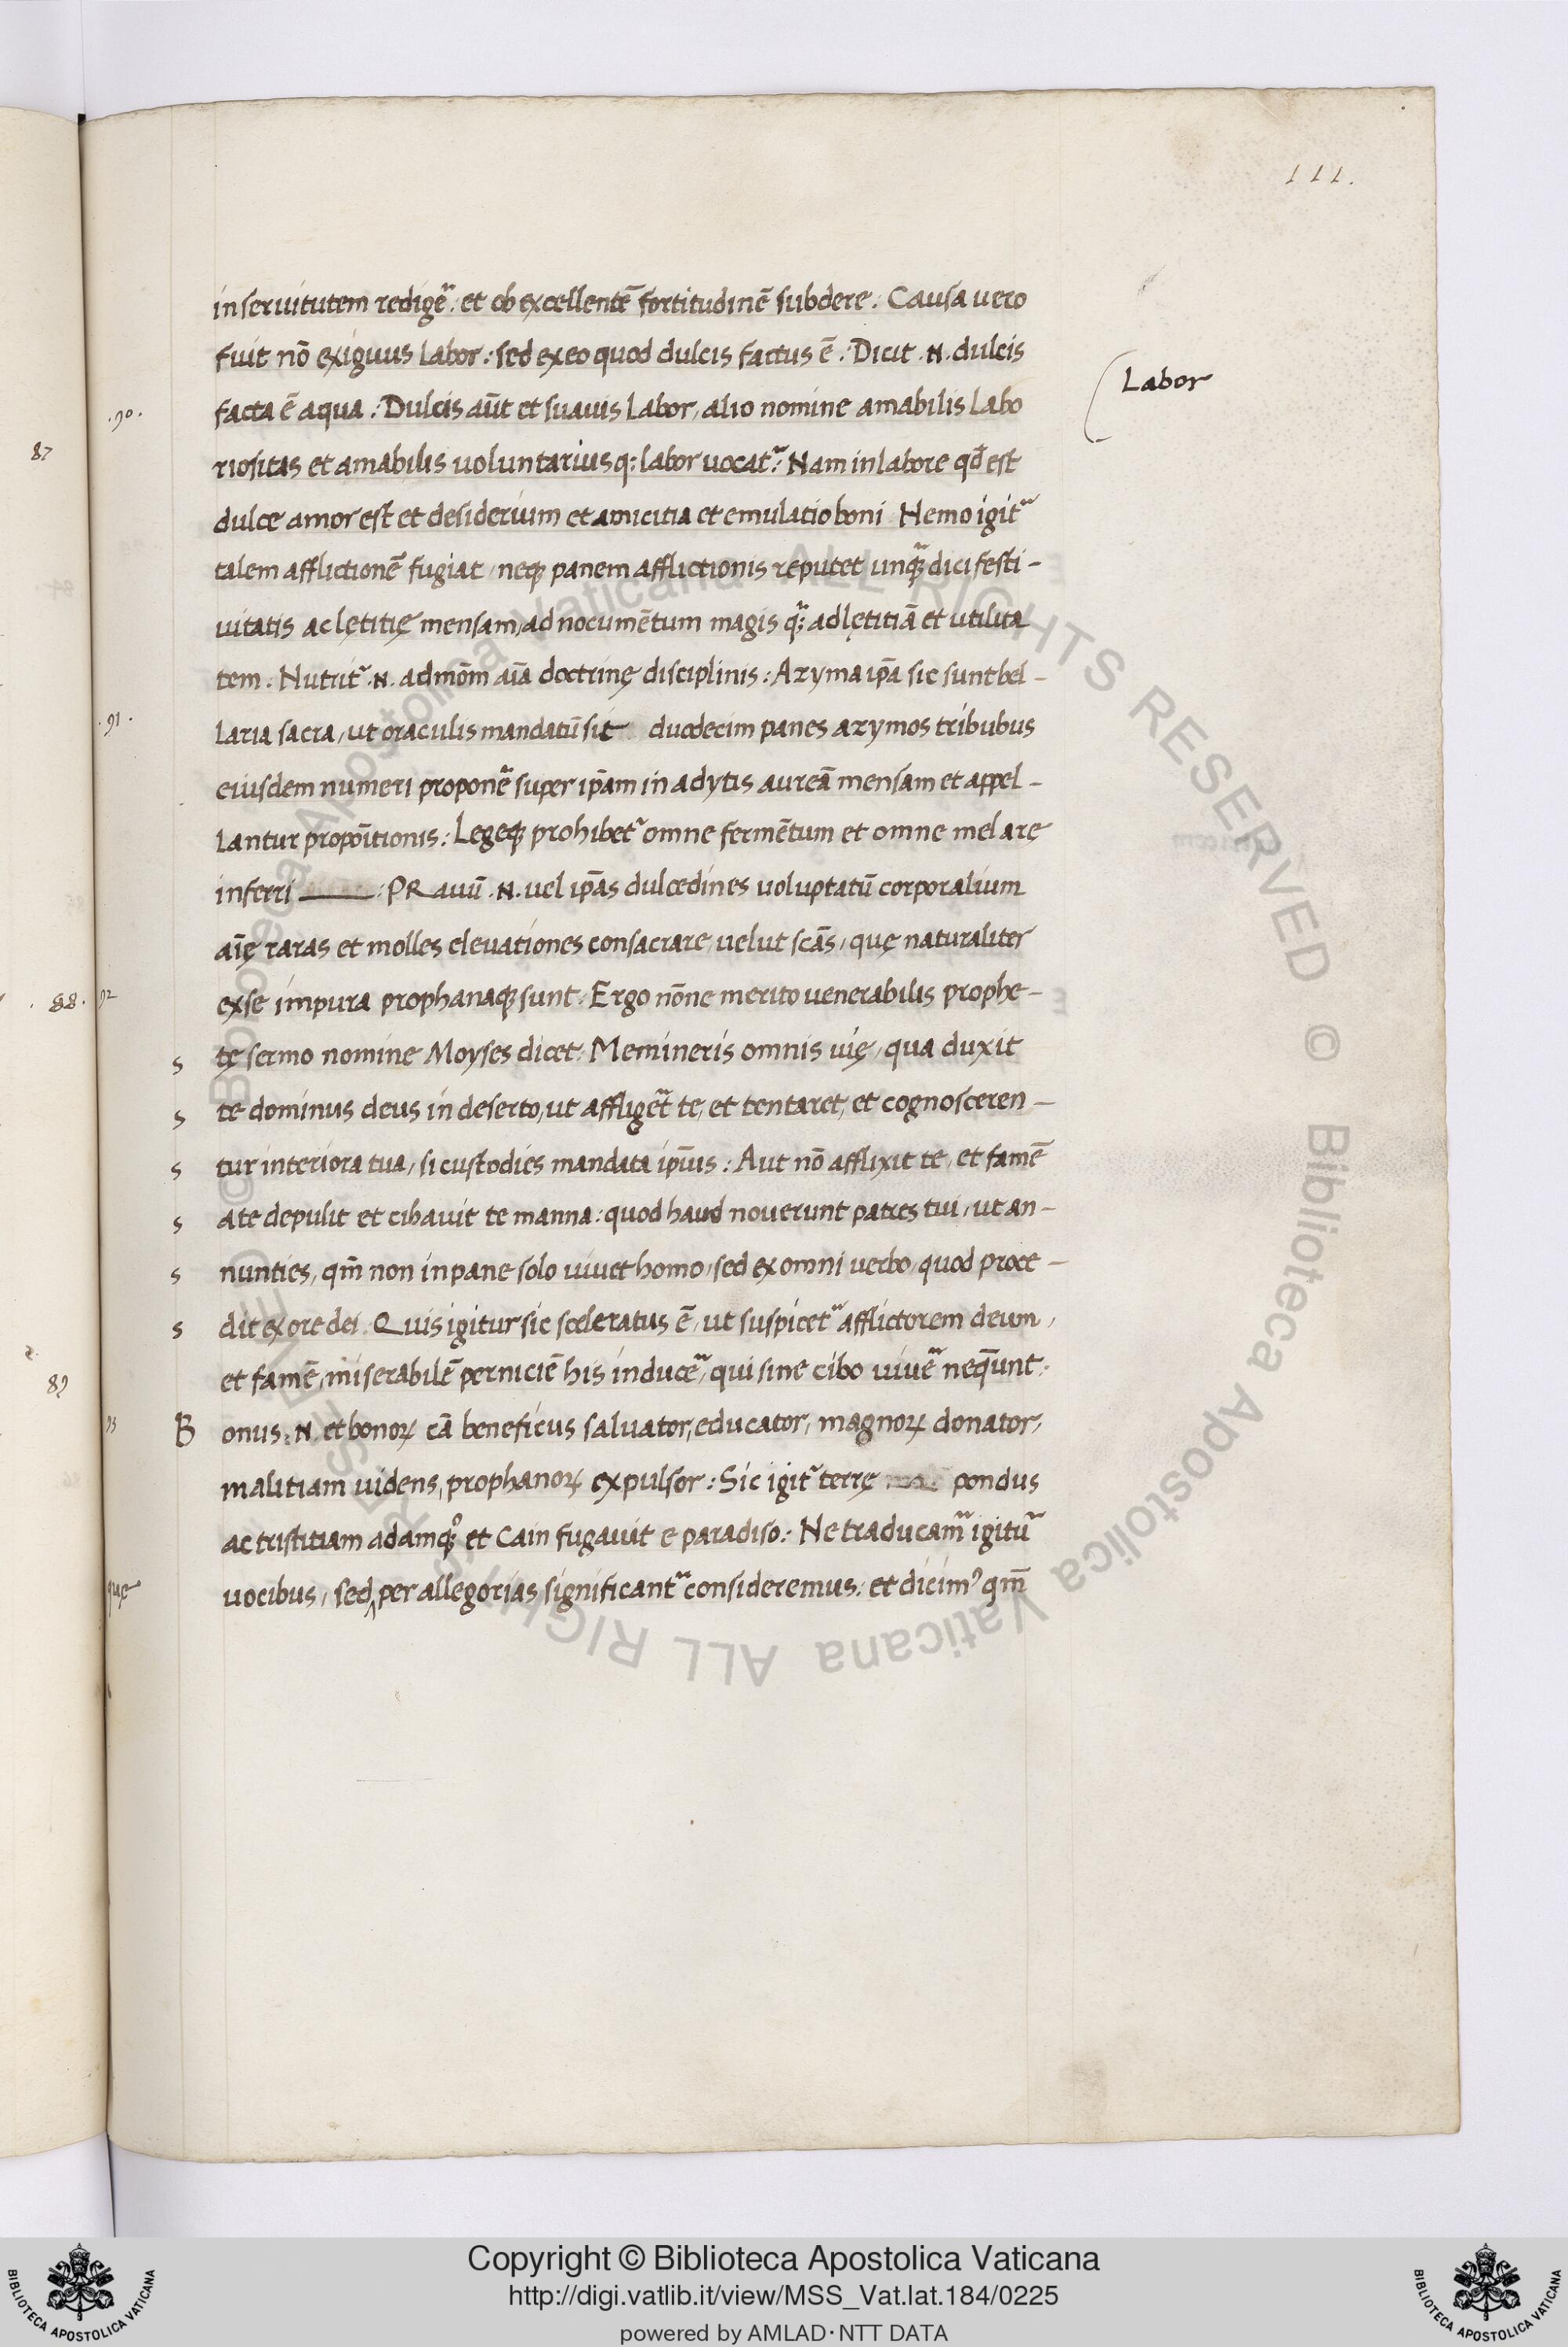 111.
in seruitutem redigē: et ob excellentē fortitudinē subdere: Causa uero
fuit nō exiguus labor: sed ex eo quod dulcis factus ē: Dicit .N. dulcis
Labor
.90.
facta ē aqua: Dulcis aūt et suauis labor, alio nomine amabilis labo
87
riositas et amabilis uoluntariusq: labor uocatr: Nam in labore qđ est
dulce amor est et desiderium et amicitia et emulatio boni Nemo igitr
talem afflictionē fugiat, neq; panem afflictionis reputet unq̃ dici festi-
uitatis ac lętitię mensam, ad nocumētum magis q̃; ad lętitiā et utilita
tem. Nutritr .N. admōm aīa doctrinę disciplinis: Azyma ip̄a sic sunt bel-
.91.
laria sacra, ut oraculis mandatū sit duodecim panes azymos tribubus
eiusdem numeri proponē super ip̄am in adytis aureā mensam et appel-
lantur propōitionis: Legeq; prohibetr omne fermētum et omne mel arę
inferri : PRauū .N. uel ip̄as dulcedines uoluptatū corporalium
aīę raras et molles eleuationes consacrare, uelut scās, quę naturaliter
.88. 92
ex se impura prophanaq; sunt: Ergo nōne merito uenerabilis prophe-
s tę sermo nomine Moyses dicet: Memineris omnis uię, qua duxit
s te dominus deus in deserto, ut affligēt te, et tentaret, et cognosceren-
s tur interiora tua, si custodies mandata ip̄ius: Aut nō afflixit te, et famē
s a te depulit et cibauit te manna: quod haud nouerunt patres tui, ut an-
s nunties, qm̄ non in pane solo uiuet homo, sed ex omni uerbo, quod proce-
s dit ex ore dei. Quis igitur sic sceleratus ē, ut suspicetr afflictorem deum,
89
et famē, miserabilē perniciē his inducē, qui sine cibo uiuē neq̄unt:
93
B onus .N. et bonoꝝ cā beneficus saluator, educator, magnoꝝ donator,
malitiam uidens, prophanoꝝ expulsor: Sic igitr terrę pondus
ac tristitiam adamq; et Cain fugauit e paradiso: Ne traducamr igitur
quę
uocibus, sed per allegorias significantr consideremus: et dicim9 qm̄
Copyright © Biblioteca Apostolica Vaticana
http://digi.vatlib.it/view/MSS_Vat.lat.184/0225
powered by AMLAD·NTT DATA
BIBLIOTECA APOSTOLICA VATICANA
BIBLIOTECA APOSTOLICA VATICANA
© Biblioteca Apostolica Vaticana ALL RIGHTS RESERVED © Biblioteca Apostolica Vaticana ALL RIGHTS RESERVED